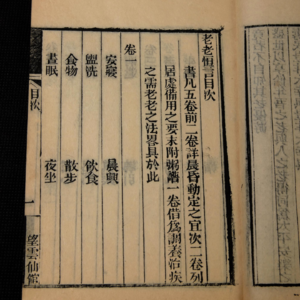 老老恒言目次
書凡五卷前二卷詳晨昏動定之宜次二卷列
居處備用之要末附粥譜一卷借爲調養治疾
之需老老之法畧具於此
卷一
安寢　晨興
盥洗　飲食
食物　散步
晝眠　夜坐
目次　一　望雲仙館